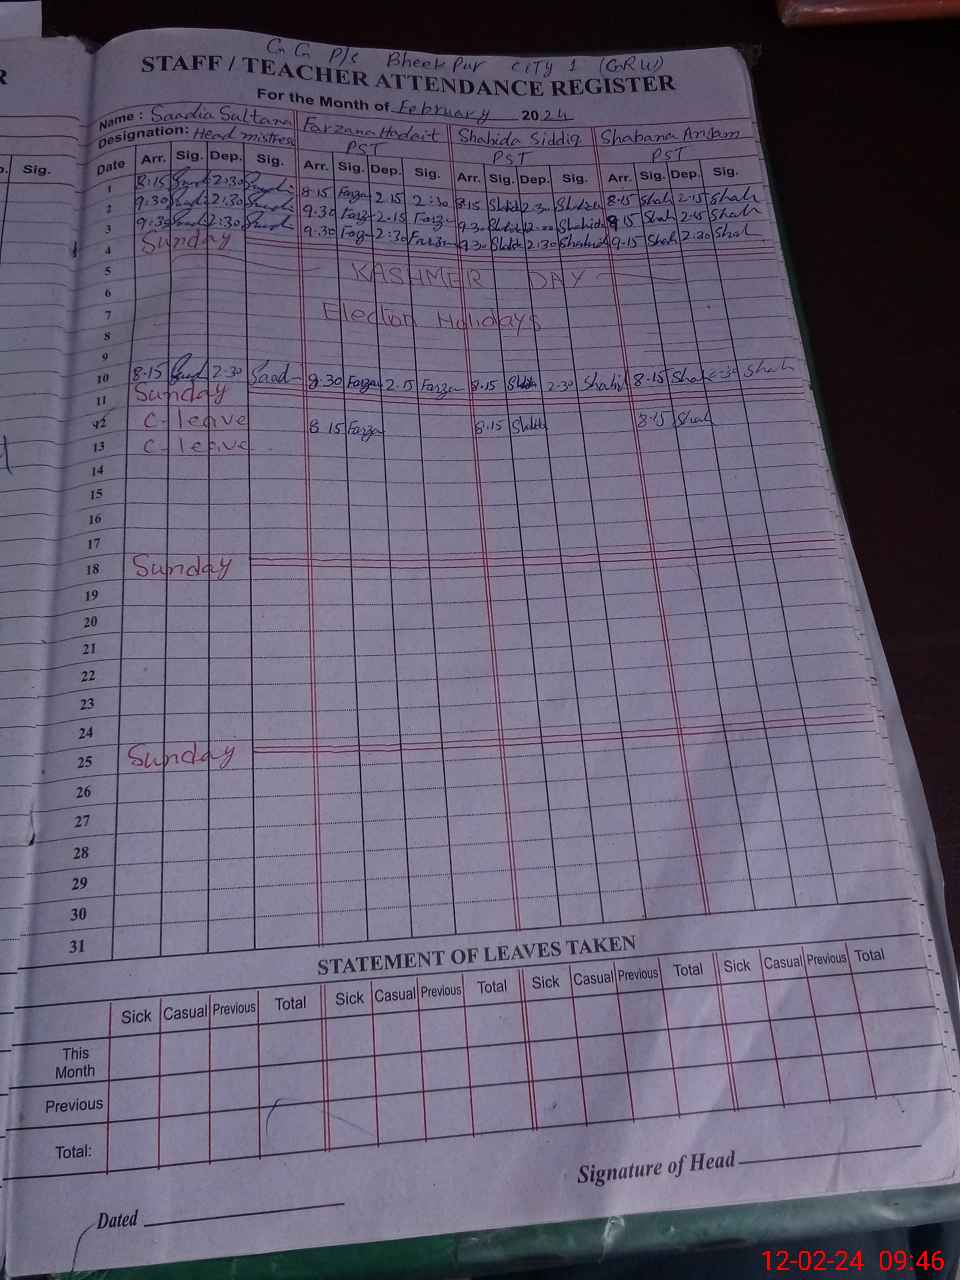 G G P/S Bheek Pur CITY 1 (GRW)
STAFF / TEACHER ATTENDANCE REGISTER
For the Month of February 2024
Name : Saadia Sultana Farzana Hadait Shahida Siddiq Shabana Anjam
Designation: Head mistress PST PST PST
Date Arr. Sig. Dep. Sig. Arr. Sig. Dep. Sig. Arr. Sig. Dep. Sig. Arr. Sig. Dep. Sig.
1 8:15 2:30 8:15 Farza 2:15 2:30 8:15 2:30 8:15 Shah 2:15 Shah
2 9:30 2:30 9:30 Farz 2:15 Farz 9:30 Shahida 9:15 Shah 2:15 Shah
3 9:30 2:30 9:30 Farz 2:30 Farzan 9:30 2:30 Shahida 9:15 Shah 2:30 Shah
4 Sunday
5 KASHMER DAY
6
7 Election Holidays
8
9
10 8:15 2:30 Saad 9:30 Farza 2:15 Farzan 8:15 2:30 Shahid 8:15 Shah 2:30 Shah
11 Sunday
12 C-leave 8:15 Farza 8:15 8:15 Shah
13 C-leave
14
15
16
17
18 Sunday
19
20
21
22
23
24
25 Sunday
26
27
28
29
30
31
STATEMENT OF LEAVES TAKEN
Sick Casual Previous Total Sick Casual Previous Total Sick Casual Previous Total Sick Casual Previous Total
This
Month
Previous
Total:
Signature of Head
Dated
12-02-24 09:46
R
Sig.